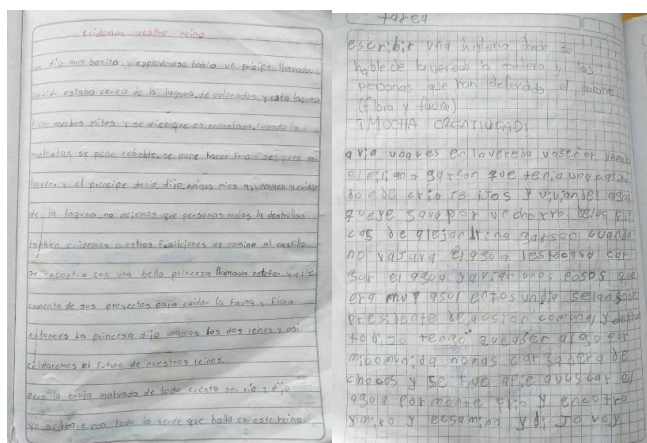 cuidemos nuestro reino
un dia muy bonito y explendoroso habia un principe llamado
David estaba cerca de la laguna de colorados y esta laguna
tiene muchos mitos y se dice que es encantada, cuando la
molestan se pone rebelde, se pone hacer frio o se pone a
llover y el principe david dijo amigos mios ayudenme a cuidar
de la laguna, no dejemos que personas malas la destrullan
tambien cuidemos nuestras tradiciones de camino al castillo
se encontro con una bella princesa llamada estefan y el le
comento de sus proyectos para cuidar la fauna y flora
entonces la princesa dijo unamos los dos reinos y asi
cuidaremos el futuro de nuestros reinos.
pero la bruja malvada de todo cuento se rio y dijo
yo acabare con todo lo verde que halla en este reino
tarea
escribir una historia donde se
hable de la vereda la
personas que han defendido el
(flora y fauna)
¡MUCHA CREATIVIDAD!
avia unaves en lavereda un señor
el garson que tenia una casa
donde crio 15 ijos y vivian del agua
por un chorro
cas de alejandrina garson cuando
no vajava el agua les tocava car
gar el agua
era muy asul
presidente de ausion comunal y
tengo que aser algo por
mi comunida no mas cargadera de
chocos y se fue a pie a vuscar el
agua por monte frio y encotro
y miro y ecsamino y dijo voy